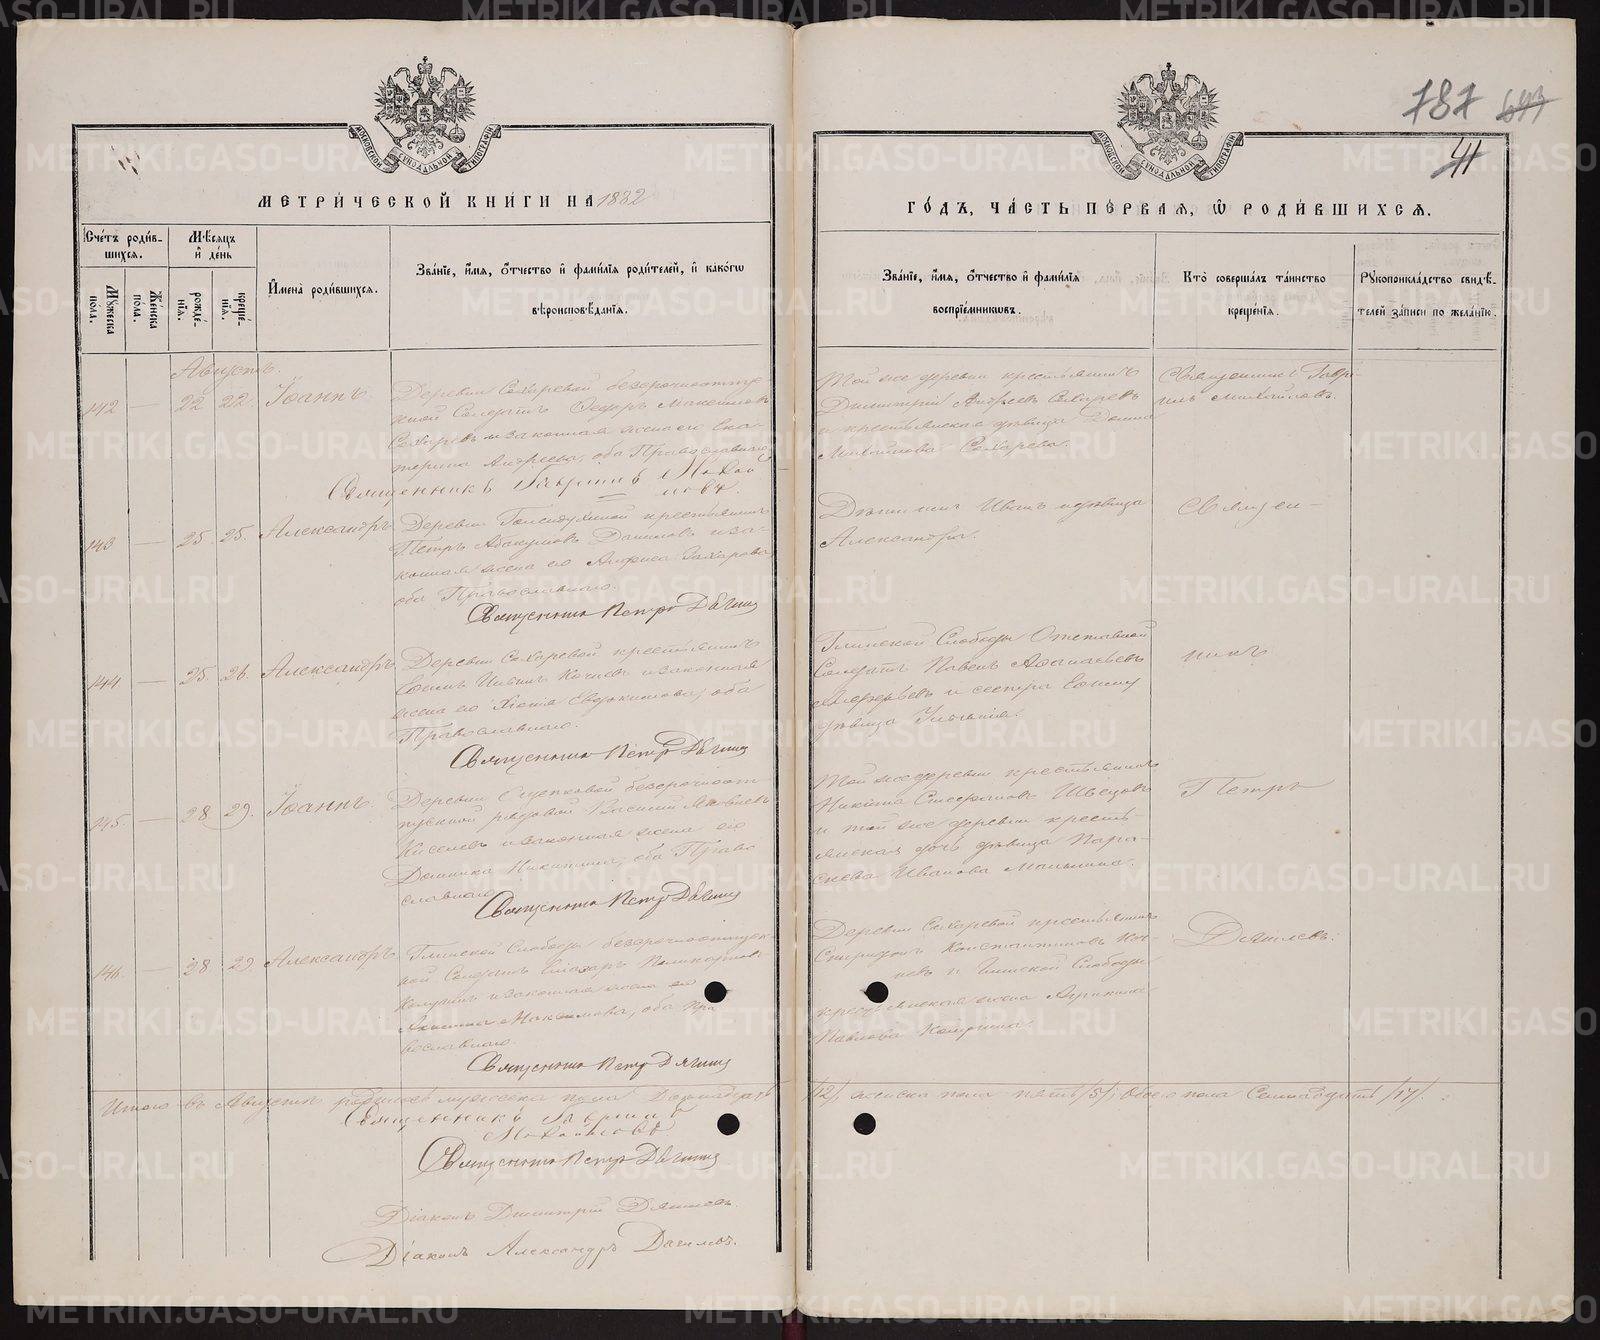 МЕТРИ́ЧЕСКОЙ КНИ́ГИ НА 1882
ГО́ДЪ, ЧА́СТЬ ПЕ́РВАЯ, Ѡ҆ РОДИ́ВШИХСЯ.
787
41
Сче́тъ роди́в-
шихся.
Мѣ́сяцъ
и҆ де́нь
Мꙋжеска
пола.
Же́нска
по́ла.
рожде́-
нїя.
креще́-
нїя.
И҆мена̀ роди́вшихся.
Зва́нїе, и҆́мя, ѻ҆́тчество и҆ фами́лїя роди́телей, и҆ како́гѡ
вѣроисповѣ́данїя.
Зва́нїе, и҆́мя, ѻ҆́тчество и҆ фами́лїя
воспрїе́мникѡвъ.
Кто̀ соверша́лъ та́инство
креще́нїя.
Рꙋкоприкла́дство свидѣ́-
телей за́писи по жела́нїю.
Августъ.
142 — 22 22 Іоаннъ
Деревни Сохаревой безсрочноотпу
скной Солдатъ Ѳедоръ Максимовъ
Сохаревъ и законная жена его Ека
терина Андреева, оба Православнаго
Священникъ Гавріилъ Михай
ловъ.
Той же деревни крестьянинъ
Димитрій Андреевъ Сохаревъ
и крестьянская дѣвица
Михайлова Сохарева.
Священникъ Гаврі-
илъ Михайловъ.
143 — 25 25. Александръ
Деревни крестьянинъ
Петръ Абакумовъ Даниловъ и за-
конная жена его Анфиса Захарова
оба Православнаго.
Священникъ Петръ Дягилевъ
Иванъ и дѣвица
Александра.
Священ-
144 — 25 26. Александръ
Деревни Сохаревой крестьянинъ
Кочневъ и законная
жена его Евдокимова, оба
Православнаго.
Священникъ Петръ Дягилевъ
Глинской Слободы Отставной
Солдатъ Павелъ Аѳанасьевъ
и сестра
дѣвица
никъ
145 — 28 29. Іоаннъ.
Деревни безсрочноот
пускной рядовой Василій Яковлевъ
Киселевъ и законная жена его
Домника Никитина, оба Право
славнаго
Священникъ Петръ Дягилевъ
Той же деревни крестьянинъ
Никита Стефановъ Швецовъ
и той же деревни кресть-
янская дочь дѣвица Пара-
скева Иванова
Петръ
146. — 28 29. Александръ
Глинской Слободы безсрочноотпуск-
ной Солдатъ Елеазаръ Поликарповъ
и законная жена его
Акилина Максимова, оба Пра
вославнаго.
Священникъ Петръ Дягилевъ
Деревни Сохаревой крестьянинъ
Спиридонъ Константиновъ Коч-
невъ и Глинской Слободы
крестьянская жена Агрипина
Павлова
Дягилевъ.
Итого въ Августѣ родилось мужеска пола Двѣнадцать
/12/, женска пола пять /5/; Обоего пола Семнадцать /17/.
Священникъ Гавріилъ
Михайловъ
Священникъ Петръ Дягилевъ
Діаконъ Димитрій
Діаконъ Александръ
METRIKI.GASO-URAL.RU